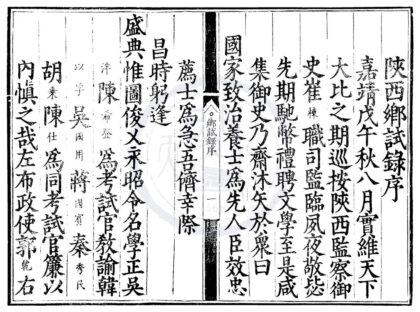 陝西鄉試録序
嘉靖戊午秋八月實維天下
大比之期巡按陝西監察御
史崔棟職司監臨夙夜敬毖
先期馳幣禮聘文學至是咸
集御史乃齋沐矢於衆曰
國家致治養士爲先人臣效忠
鄉試録序 一
薦士爲急吾儕幸際
昌時躬逢
盛典惟圖俊乂永昭令名學正吳
泮陳爲考試官教諭韓
吳國用蔣秦秀民
胡陳仕爲同考試官簾以
内慎之哉左布政使郭乾右